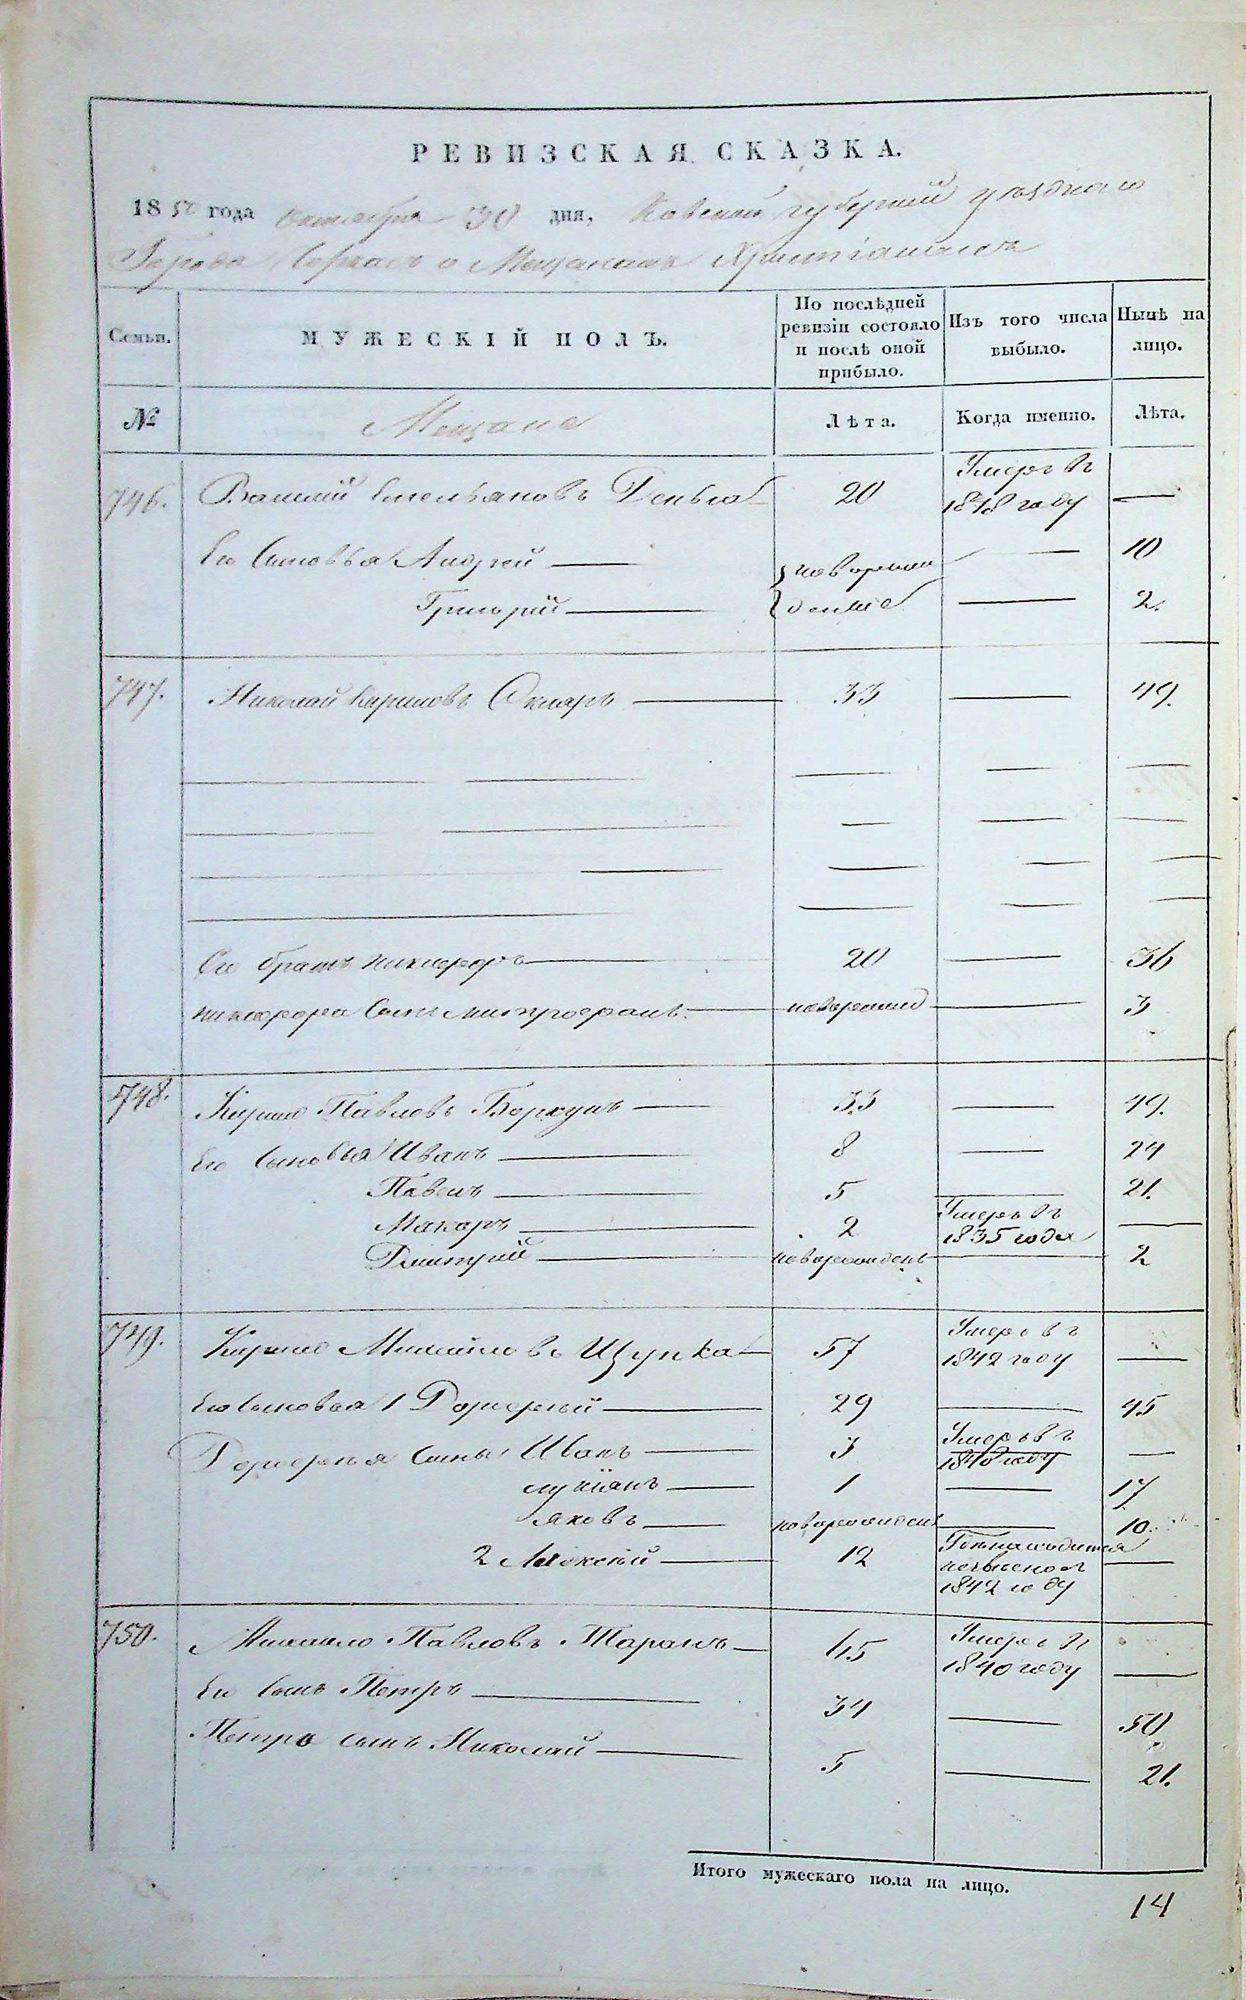 РЕВИЗСКАЯ СКАЗКА.
1850 года Октября 30 дня, Кевской губерніи уезднаго
Города Черкасъ о Мещанахъ Христіанахъ
Семьи.
МУЖЕСКІЙ ПОЛЪ.
По послѣдней ревизіи состояло и послѣ оной прибыло.
Изъ того числа выбыло.
Нынѣ на лицо.
№
Мещане
Лѣта.
Когда именно.
Лѣта.
746. Василій Емельяновъ 20 Умеръ въ 1848 году —
Его Сыновья Андрей — новорож — 10
Григорій — денные — 2.
747. Николай Кириловъ — 33 — 49.
Его братъ Никифоръ — 20 — 36
Никифора Сынъ Митрофанъ — новорожд — 3
748. Кирило Павловъ Боркунъ — 33 — 49.
Его Сыновья Иванъ — 8 — 24
Павелъ — 5 — 21.
Макаръ — 2 Умеръ въ 1835 года —
Дмитрій — новорожденъ — 2
749. Кирило Михайловъ Щупка — 57 Умеръ въ 1842 году —
Его Сыновья 1 Дорофей — 29 — 45
Дорофея Сыны Иванъ — 3 Умеръ въ 1840 году —
Лукіянъ — 1 — 17
Яковъ — новорожденъ — 10.
2 Алексей — 12 1842 году —
750. Михайло Павловъ Таранъ — 65 Умеръ въ 1840 году —
Его Сынъ Петръ — 34 — 50
Петра сынъ Николай — 5 — 21.
Итого мужескаго пола на лицо.
14